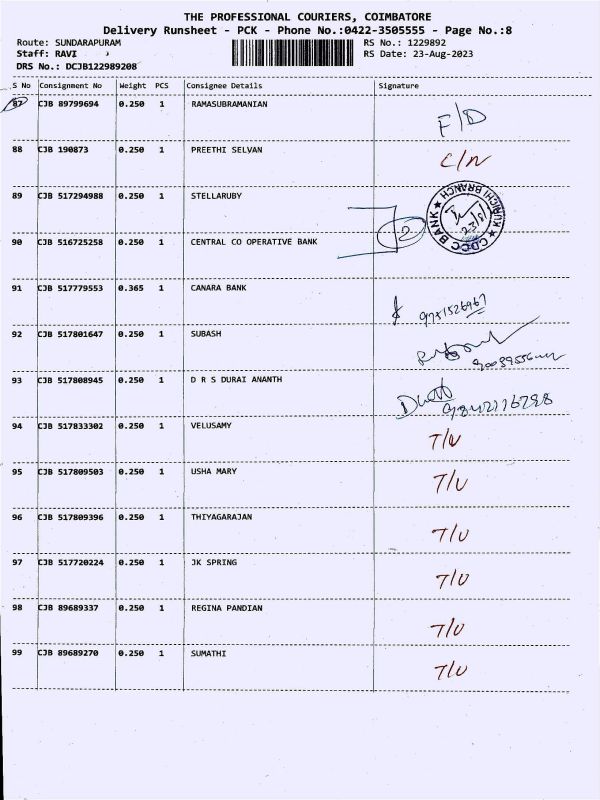 THE PROFESSIONAL COURIERS, COIMBATORE
Delivery Runsheet - PCK - Phone No.:0422-3505555 - Page No.:8
Route: SUNDARAPURAM RS No.: 1229892
Staff: RAVI RS Date: 23-Aug-2023
DRS No.: DCJB122989208
S No Consignment No Weight PCS Consignee Details Signature
87 CJB 89799694 0.250 1 RAMASUBRAMANIAN F/D
88 CJB 190873 0.250 1 PREETHI SELVAN C/N
89 CJB 517294988 0.250 1 STELLARUBY
CDCC BANK ★ KURICHI BRANCH ★
2
90 CJB 516725258 0.250 1 CENTRAL CO OPERATIVE BANK
91 CJB 517779553 0.365 1 CANARA BANK
92 CJB 517801647 0.250 1 SUBASH
93 CJB 517808945 0.250 1 D R S DURAI ANANTH
94 CJB 517833302 0.250 1 VELUSAMY T/U
95 CJB 517809503 0.250 1 USHA MARY T/U
96 CJB 517809396 0.250 1 THIYAGARAJAN T/U
97 CJB 517720224 0.250 1 JK SPRING T/U
98 CJB 89689337 0.250 1 REGINA PANDIAN T/U
99 CJB 89689270 0.250 1 SUMATHI T/U